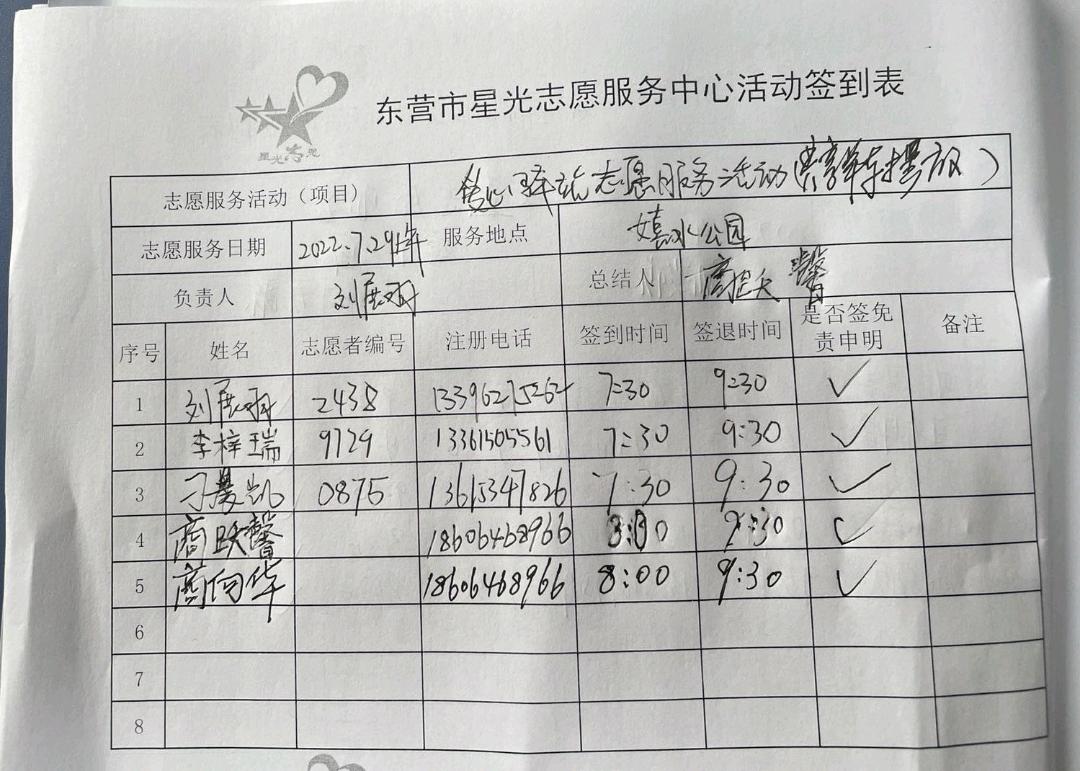 东营市星光志愿服务中心活动签到表
星光志愿
志愿服务活动（项目） 爱心驿站志愿服务活动（共享单车摆放）
志愿服务日期 2022.7.29 服务地点 嬉水公园
负责人 刘展羽 总结人 商跃馨
序号 姓名 志愿者编号 注册电话 签到时间 签退时间 是否签免责申明 备注
1 刘展羽 2438 13396275262 7:30 9:30 ✓
2 李梓瑞 9729 13361505561 7:30 9:30 ✓
3 刁晨凯 0875 13615347826 7:30 9:30 ✓
4 商跃馨 18606468966 9:30 ✓
5 商向华 18606468966 8:00 9:30 ✓
6
7
8